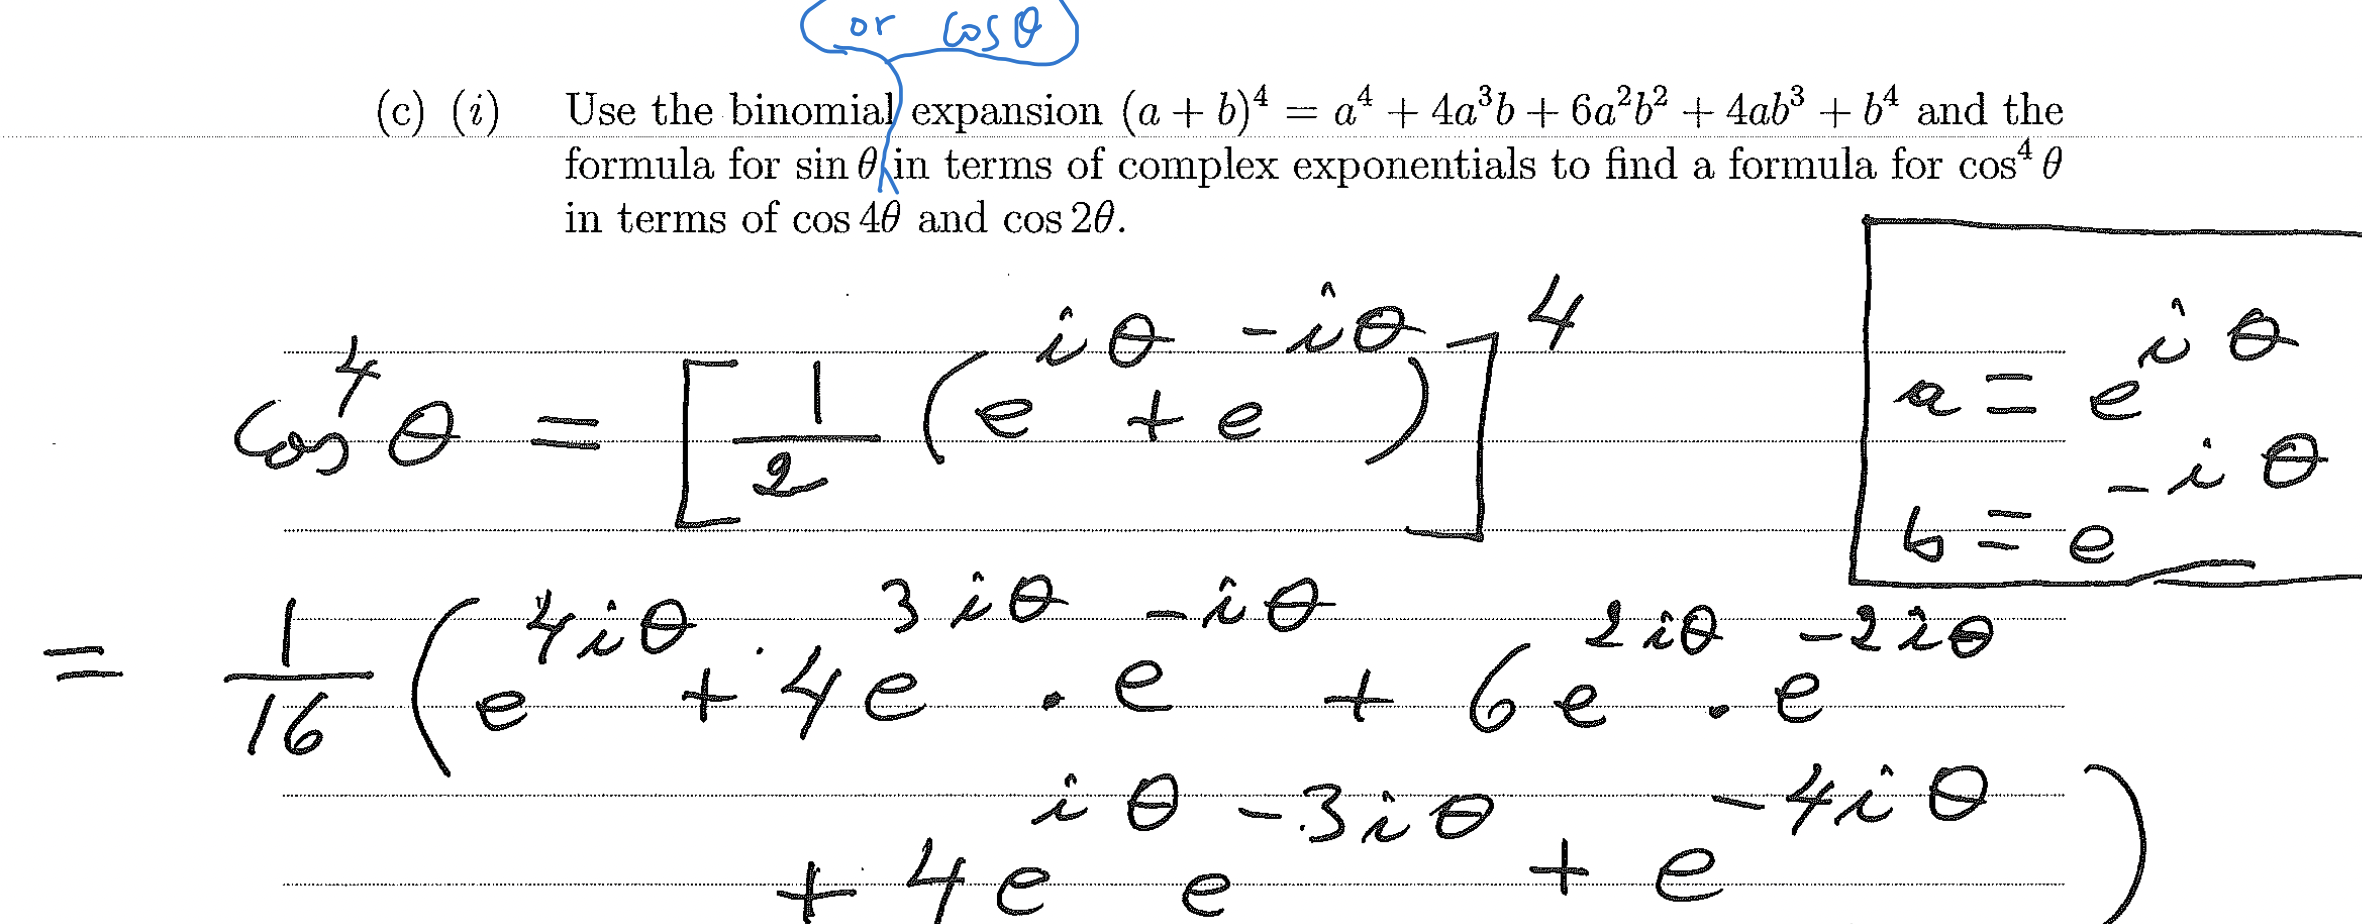 or cosθ
(c) (i) Use the binomial expansion (a + b)⁴ = a⁴ + 4a³b + 6a²b² + 4ab³ + b⁴ and the
formula for sin θ in terms of complex exponentials to find a formula for cos⁴ θ
in terms of cos 4θ and cos 2θ.
cos⁴θ = [1/2 (e^{iθ} + e^{-iθ})]⁴
a = e^{iθ}
b = e^{-iθ}
= 1/16 (e^{4iθ} + 4e^{3iθ} · e^{-iθ} + 6e^{2iθ} · e^{-2iθ}
+ 4e^{iθ} e^{-3iθ} + e^{-4iθ})